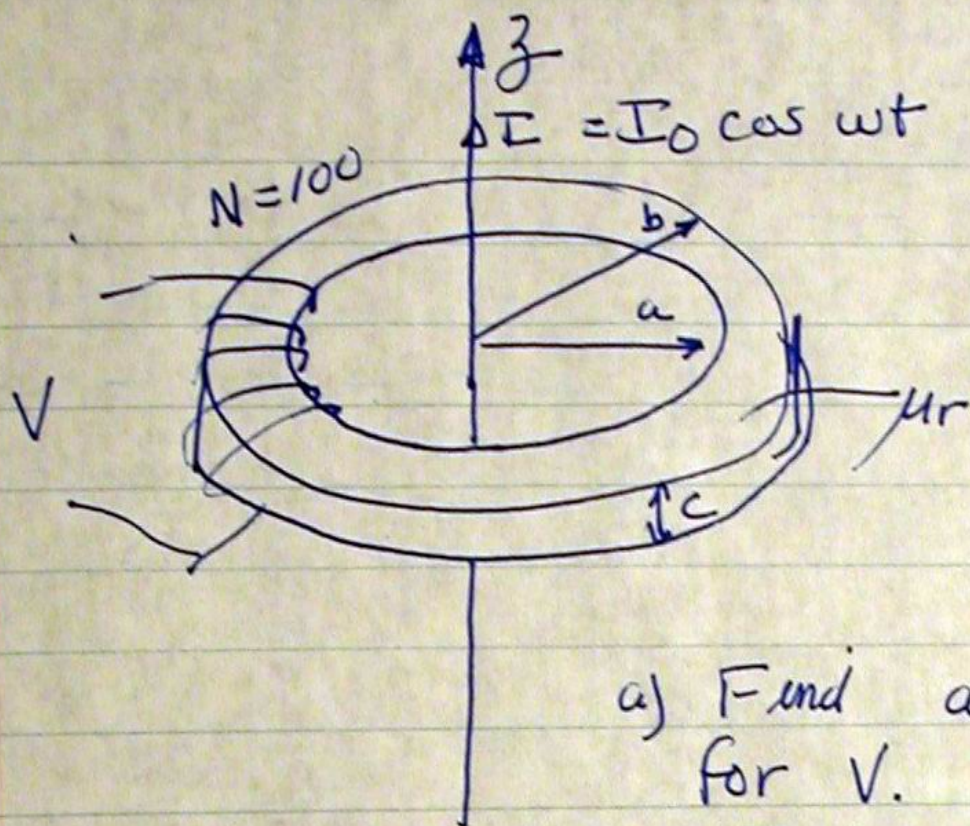 z
I = I₀ cos ωt
N=100
b
a
V
μr
c
a) Find a
for V.